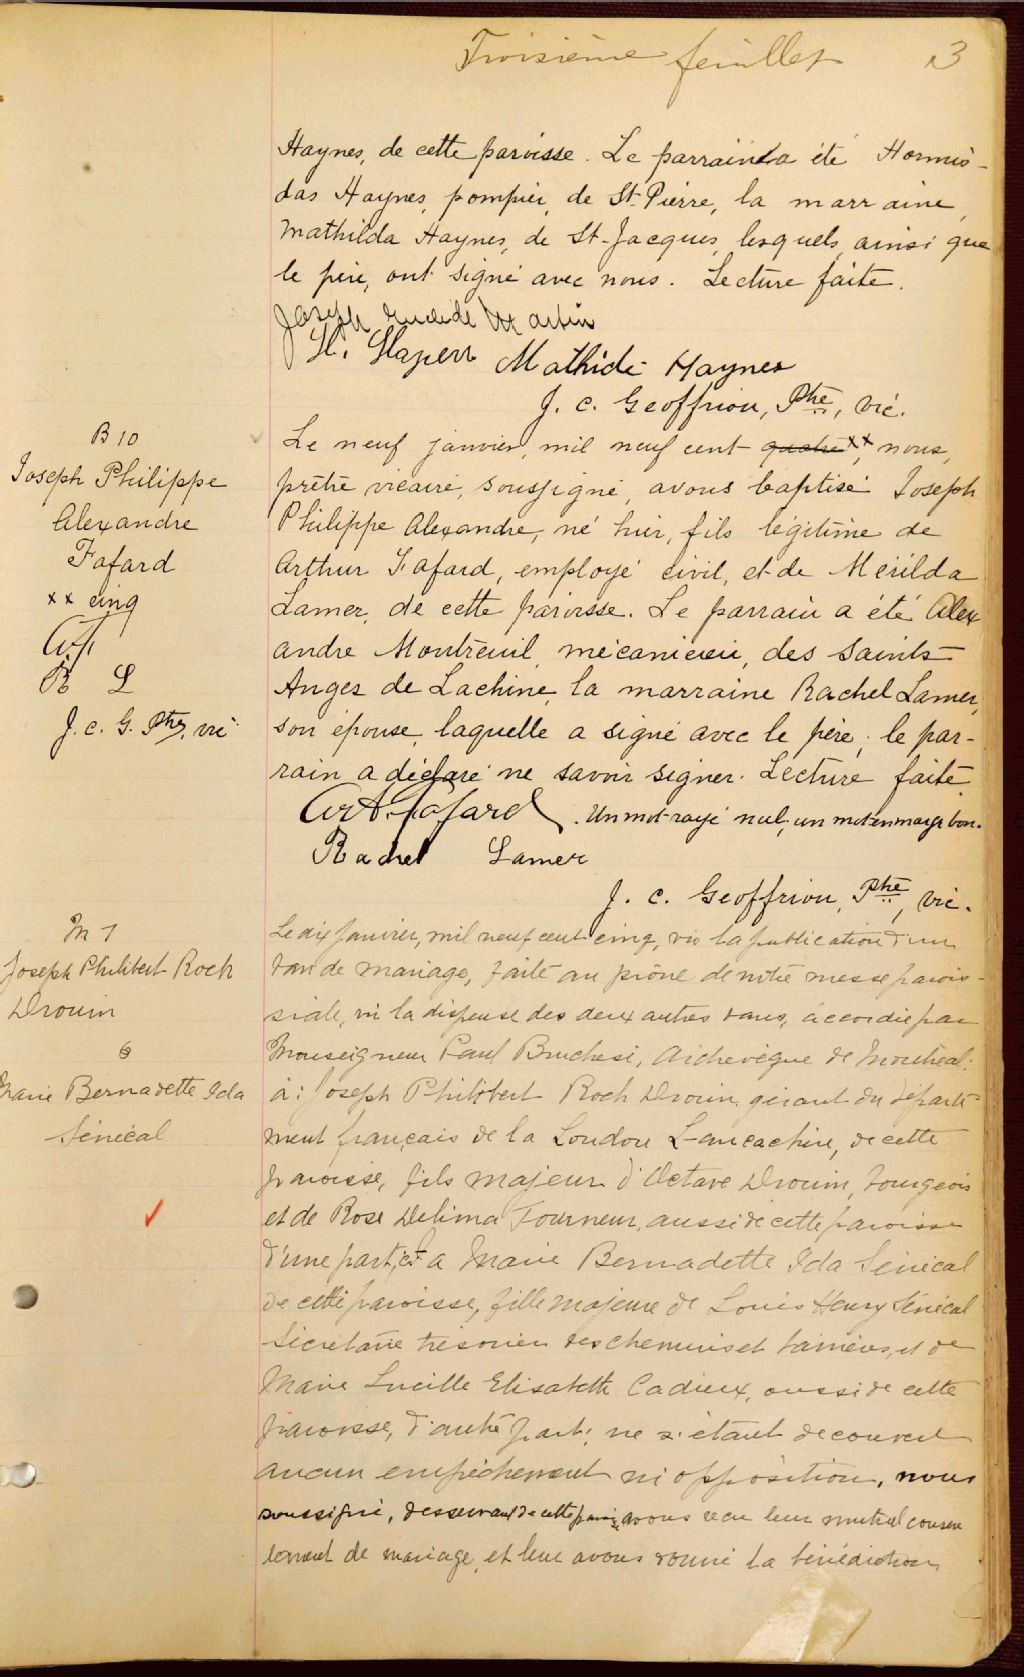 Troisième feuillet 3
Haynes, de cette paroisse. Le parrain a été Hormis-
das Haynes, pompier, de St-Pierre, la marraine,
Mathilda Haynes, de St-Jacques, lesquels, ainsi que
le père, ont signé avec nous. Lecture faite.
Joseph Martin
H. Mathilde Haynes
J. C. Geoffrion, Ptre, vic.
B 10
Joseph Philippe
Alexandre
Fafard
xx cinq
A.f.
R L
J. C. G. Ptre, vic.
Le neuf janvier, mil neuf cent quatre xx, nous,
prêtre vicaire, soussigné, avons baptisé Joseph
Philippe Alexandre, né hier, fils légitime de
Arthur Fafard, employé civil, et de Mérilda
Lamer, de cette paroisse. Le parrain a été Alex
andre Montreuil, mécanicien, des Saints-
Anges de Lachine, la marraine Rachel Lamer,
son épouse, laquelle a signé avec le père; le par-
rain a déclaré ne savoir signer. Lecture faite.
Art. Fafard. Un mot rayé nul, un mot en marge bon.
Rachel Lamer
J. C. Geoffrion, Ptre, vic.
M 7
Joseph Philibert Roch
Drouin
&
Marie Bernadette Ida
Sénécal
Le dix janvier, mil neuf cent cinq, vu la publication d'un
ban de mariage, faite au prône de notre messe parois-
siale, vu la dispense des deux autres bans, accordée par
Monseigneur Paul Bruchési, Archevêque de Montréal.
à: Joseph Philibert Roch Drouin, gérant du départe-
ment français de la London Lancashire, de cette
paroisse, fils majeur d'Octave Drouin, bourgeois
et de Rose Délima Tourneur, aussi de cette paroisse
d'une part, et à Marie Bernadette Ida Sénécal
de cette paroisse, fille majeure de Louis Henry Sénécal
Sécrétaire trésorier des chemins et barrières, et de
Marie Lucille Elisabeth Cadieux, aussi de cette
paroisse, d'autre part; ne s'étant découvert
aucun empêchement ni opposition, nous
soussigné, desservant de cette avons reçu leur mutuel consen
tement de mariage, et leur avons donné la bénédiction